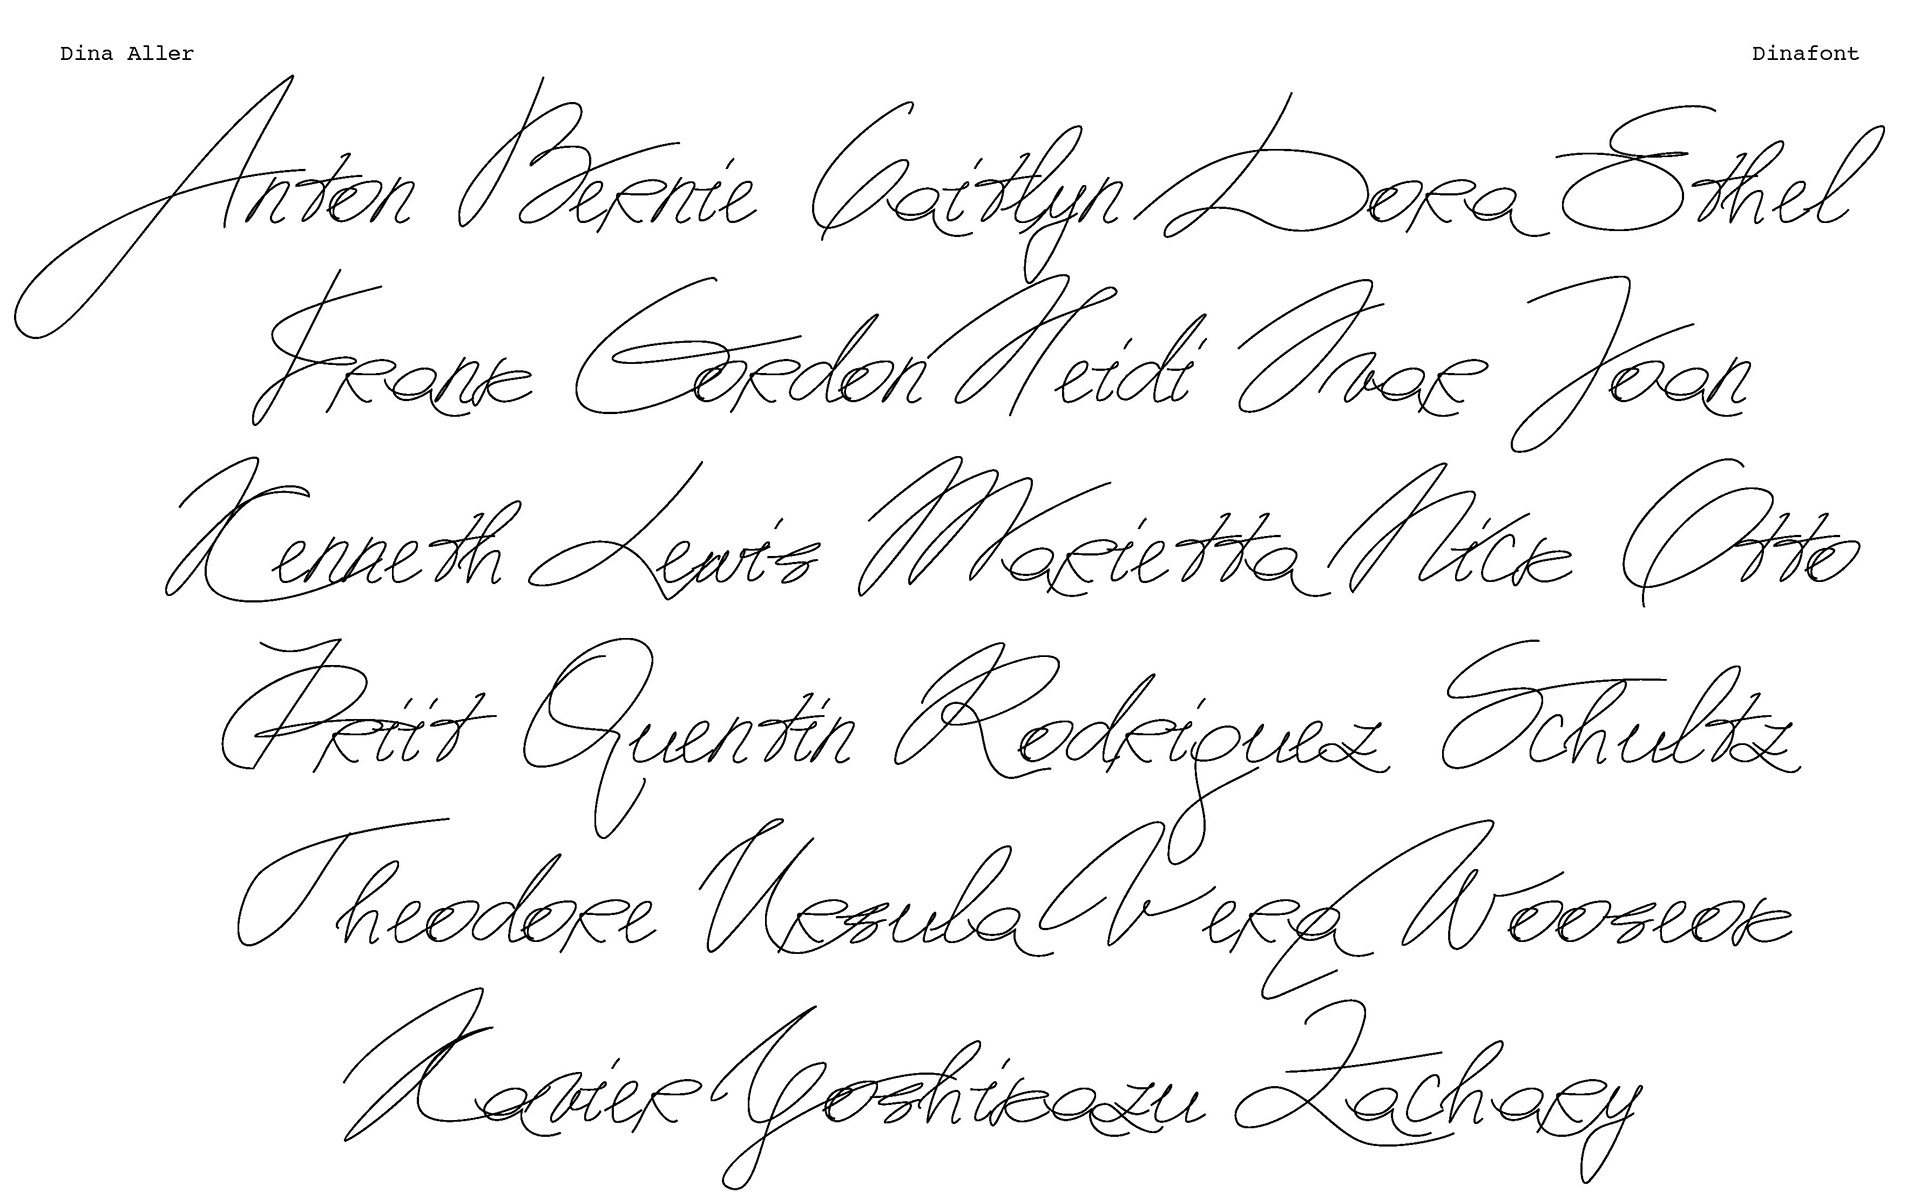 Dina Aller Dinafont
Anton Bernie Caitlyn Dora Ethel
Frank Gordon Heidi Ivar Joan
Kenneth Lewis Marietta Nick Otto
Priit Quentin Rodriguez Schultz
Theodore Ursula Vera Wooseok
Xavier Yoshikazu Zachary